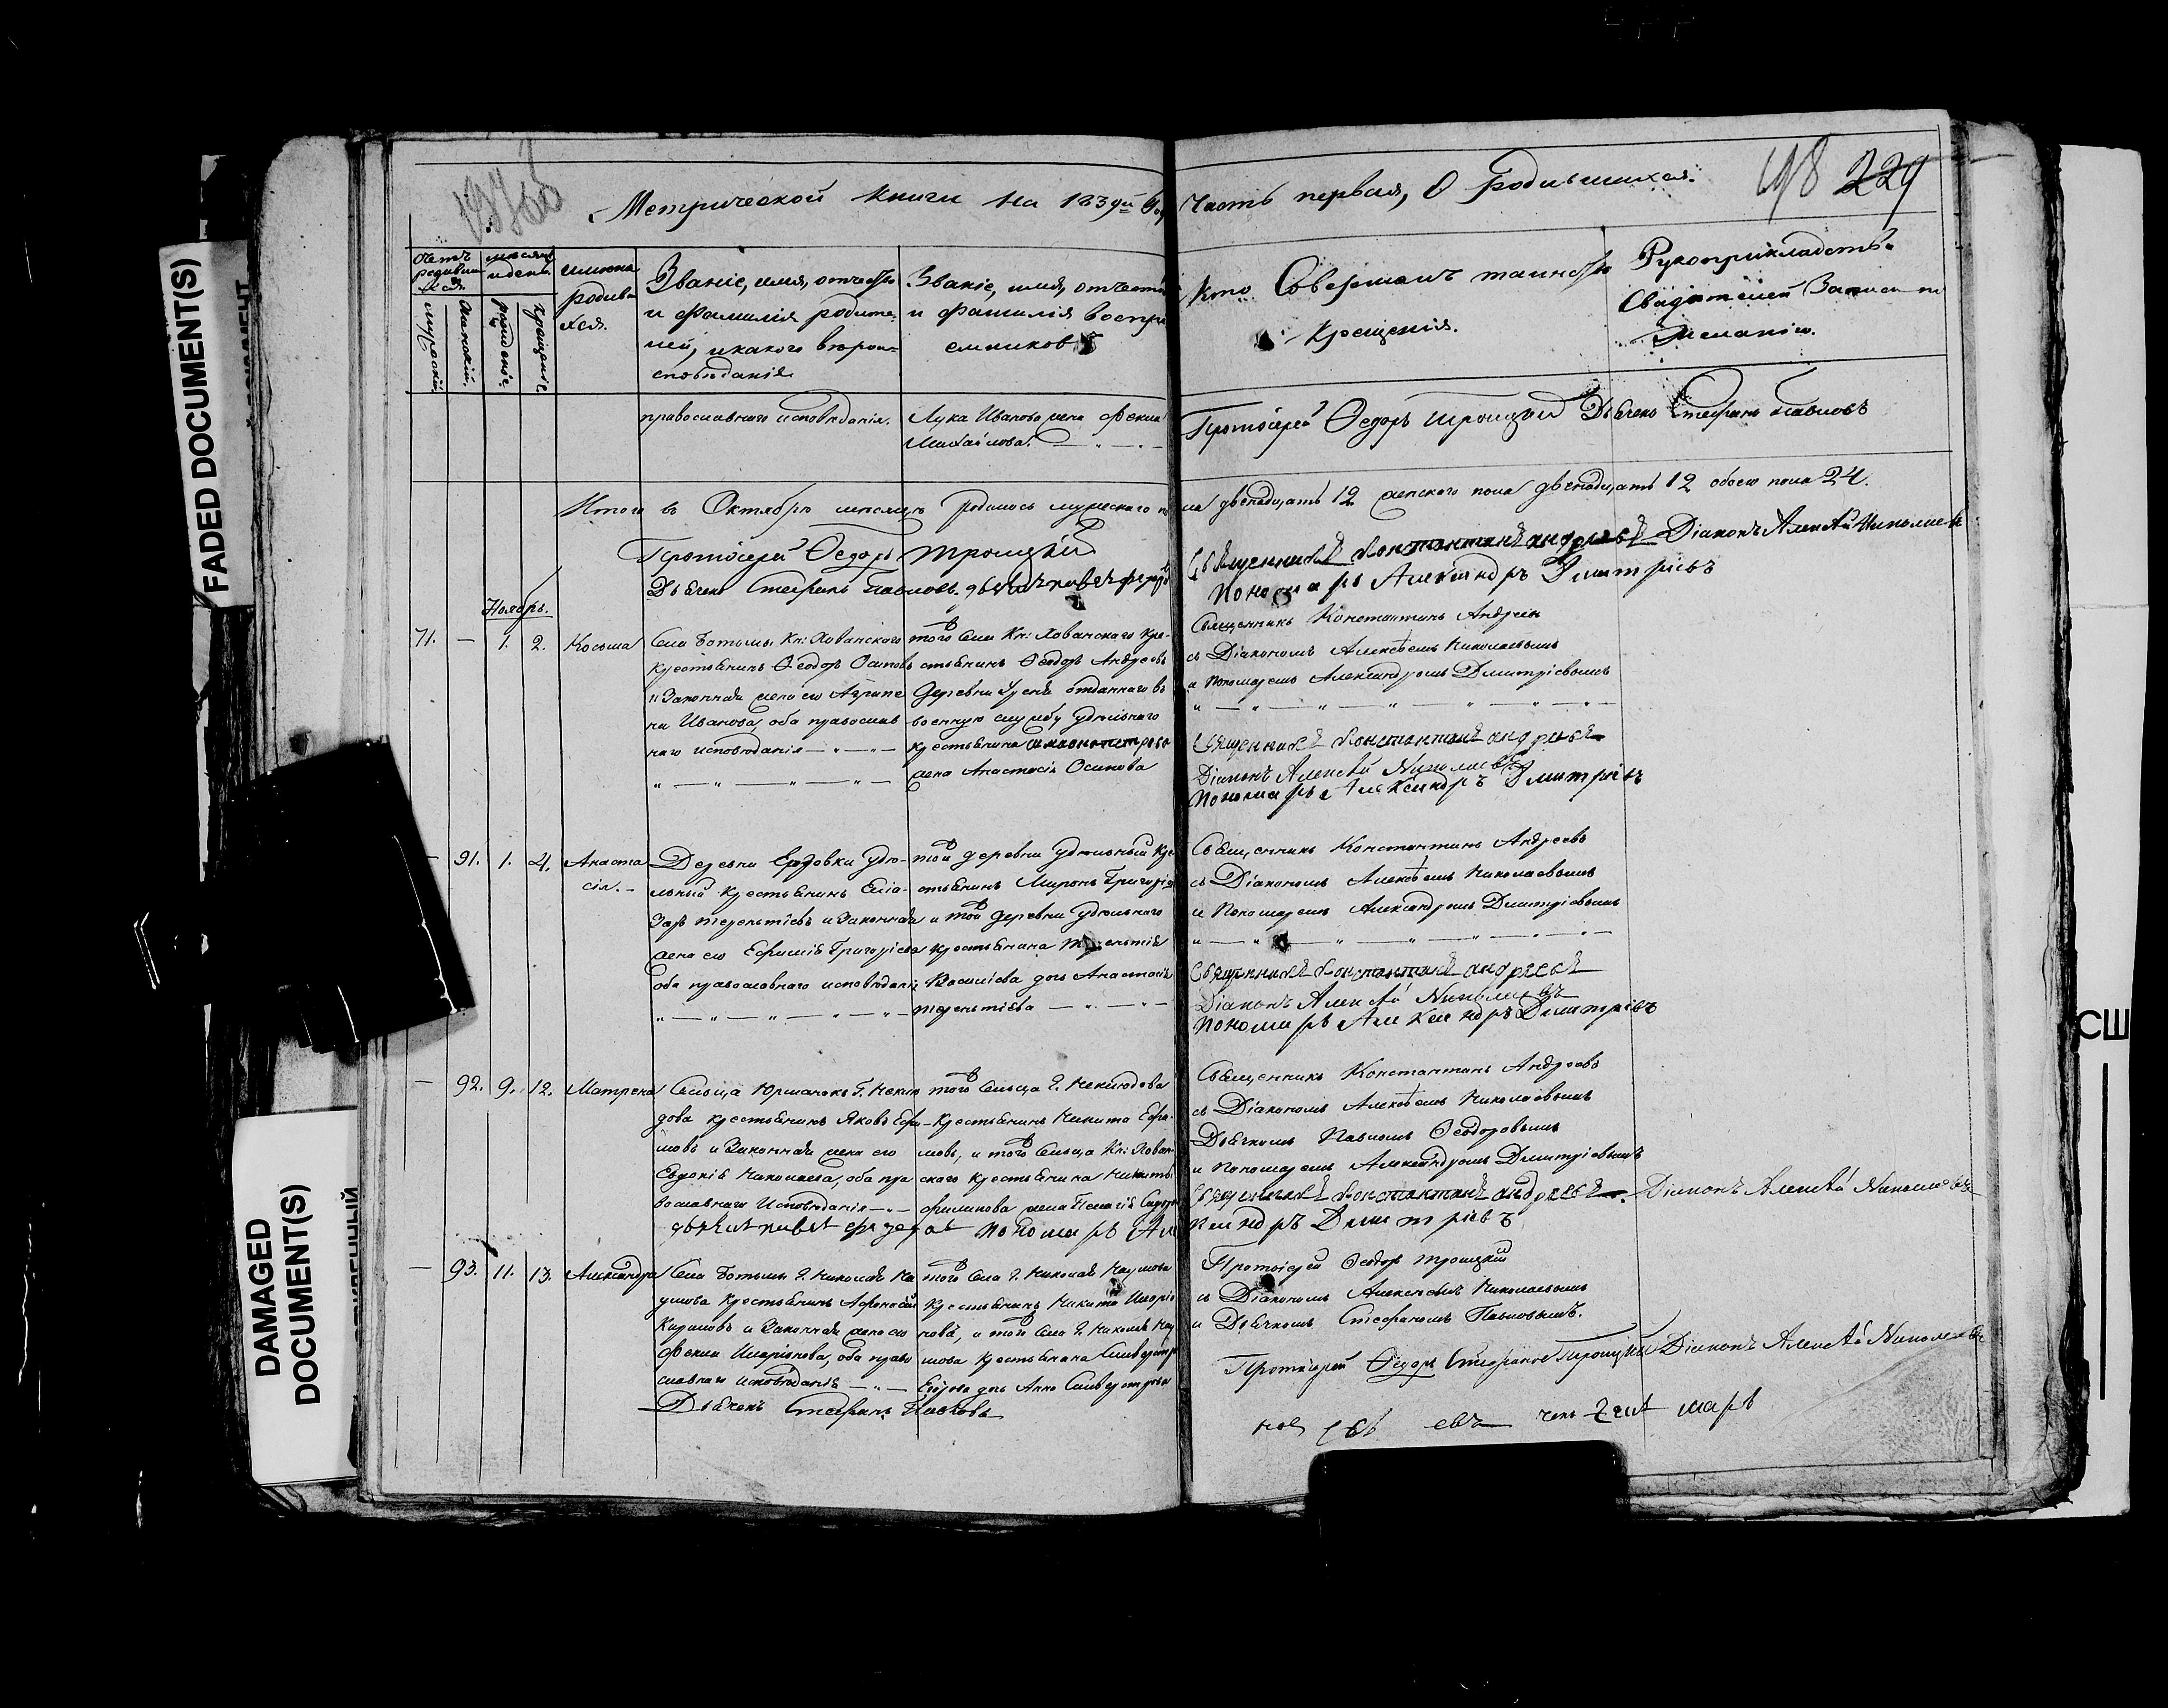 Метрической книги на 1839й Год
Часть первая, О родившихся.
198 229
Счетъ родившихся.
мужескій.
женскій.
месяцъ и день.
рожденіе.
крещеніе.
имена родившихся.
Званіе, имя, отчество
и фамилія родите-
лей, и какого вѣроис-
повѣданія
Званіе, имя, отчество
и фамилія воспрі-
емниковъ
Кто Совершалъ таинство
Крещенія.
Рукоприкладство
Свидѣтелей Записи по
желанію.
православнаго исповѣданія.
Лука Иванова жена Фекла
Михайлова.
Протоіерей Ѳедоръ Троицкій Дьячекъ Стефанъ Павловъ
Итого въ Октябрѣ месяцѣ родилось мужескаго по
ла двенадцать 12 женскаго пола двенадцать 12 обоего пола 24.
Протоіерей Ѳедоръ Троицкій
Священникъ Константинъ Андреевъ Діаконъ Алексѣй Николаевъ
Дьячекъ Стефанъ Павловъ.
Пономарь Александръ Дмитріевъ
Ноябрь.
71. — 1. 2. Косьма
Села Ботьмы Кн: Хованскаго
крестьянинъ Ѳеодоръ Осиповъ
и Законная жена его Агрипе
на Иванова, оба православ
наго исповѣданія
того Села Кн: Хованскаго кре-
стьянинъ Ѳеодоръ Андреевъ
Деревни отданнаго въ
военную службу удѣльнаго
крестьянина
жена Анастасія Осипова
Священникъ Константинъ Андреевъ
съ Діакономъ Алексѣемъ Николаевымъ
и Пономаремъ Александромъ Дмитріевымъ
Священникъ Константинъ Андреевъ
Діаконъ Алексѣй Николаевъ
Пономарь Александръ Дмитріевъ
— 91. 1. 4. Анаста
сія.
Деревни удѣ-
льный крестьянинъ Еліа-
заръ Терентіевъ и Законная
жена его Ефимія Григоріева
оба православнаго исповѣданія
той деревни удѣльный кре
стьянинъ Миронъ Григоріевъ
и той деревни удѣльнаго
крестьянина Терентія
Василіева дочь Анастасія
Терентіева
Священникъ Константинъ Андреевъ
съ Діакономъ Алексѣемъ Николаевымъ
и Пономаремъ Александромъ Дмитріевымъ
Священникъ Константинъ Андреевъ
Діаконъ Алексѣй Николаевъ
Пономарь Александръ Дмитріевъ
— 92. 9. 12. Матрена
Сельца Юрманокъ Г. Неклю
дова крестьянинъ Яковъ Ефи-
мовъ и Законная жена его
Евдокія Николаева, оба пра
вославнаго Исповѣданія
того Сельца Г. Неклюдова
Крестьянинъ Никита Ефи-
мовъ, и того Сельца Кн: Хован-
скаго крестьянина Никиты
Филипова жена Пелагія
Священникъ Константинъ Андреевъ
съ Діакономъ Алексѣемъ Николаевымъ
Дьячкомъ Павломъ Ѳеодоровымъ
и Пономаремъ Александромъ Дмитріевымъ
Священникъ Константинъ Андреевъ. Діаконъ Алексѣй Николаевъ
Пономарь Александръ Дмитріевъ
— 93. 11. 13. Александра
Села Ботьмы Г. Николая На
умова крестьянинъ Афонасій
Кириловъ и Законная жена его
Фекла Иларіонова, оба право
славнаго исповѣданія
того Села Г. Николая Наумова
Крестьянинъ Никита Иларіо
новъ, и того Села Г. Николая Нау
мова крестьянина Сильвестра
Егорова дочь Анна Сильвестрова
Протоіерей Ѳеодоръ Троицкій
съ Діакономъ Алексѣемъ Николаевымъ
и Дьячкомъ Стефаномъ Павловымъ.
Протоіерей Ѳедоръ Троицкій Діаконъ Алексѣй Николаевъ
Дьячекъ Стефанъ Павловъ
FADED DOCUMENT(S)
DAMAGED
DOCUMENT(S)
США